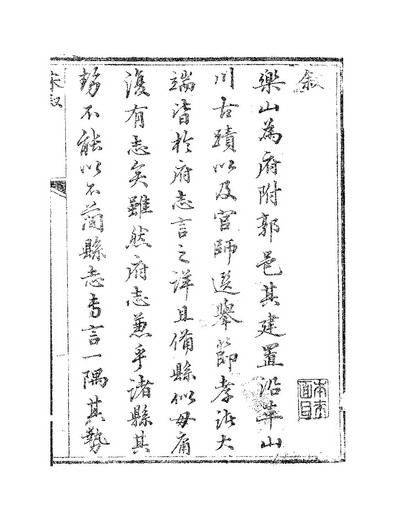 叙
樂山為府附郭邑其建置沿革山
川古蹟以及官師選舉節孝諸大
端皆於府志言之詳且備縣似毋庸
復有志矣雖然府志兼乎諸縣其
勢不能以不簡縣志專言一隅其勢
本來面目